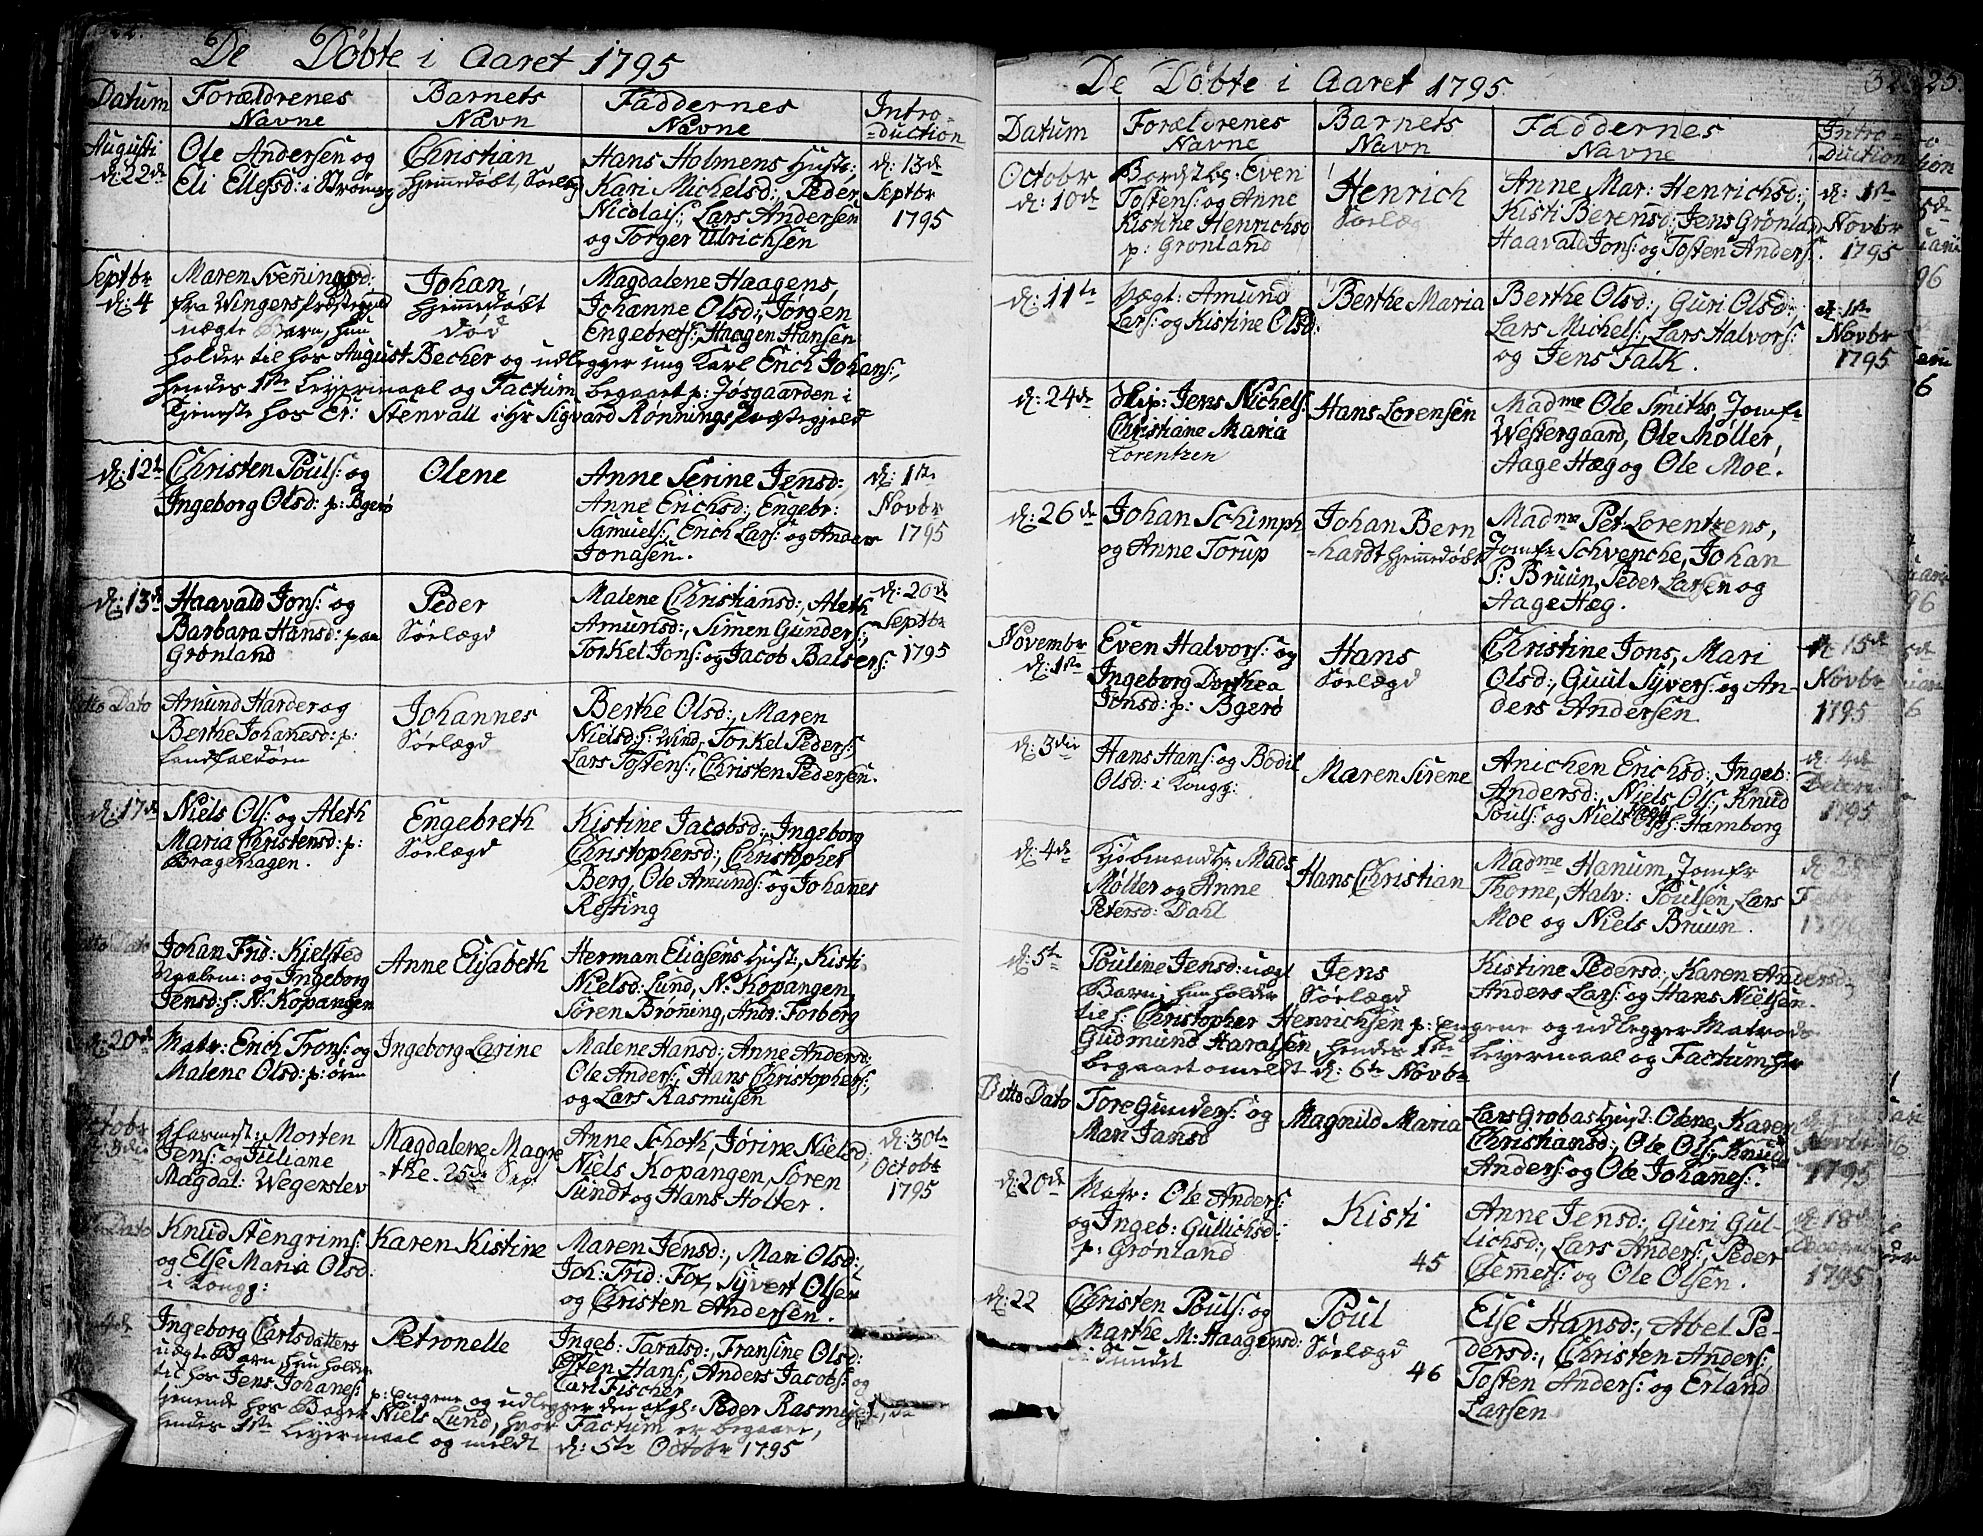 De Döbte i Aaret 1795
Datum
Forældrenes Navne
Barnets Navn
Faddernes Navne
Intro-duction
Augusti d: 22de
Ole Andersen og
Eli Ellefsd: i Strömsg
Christian
hjemmedöbt, Sörlægd
Hans Holmens Hustr:,
Kari Michelsd:, Peder
Nicolais:, Lars Andersen
og Torger Ulrichsen
d: 13de
Septbr
1795
Septbr d: 4
Maren Svenningsd:
fra Wingers Præstegield
uægte Barn, hun
Johan
hjemmedöbt
död
Magdalene Haagens,
Johanne Olsd:, Jörgen
Engebrets:, Haagen Hansen
holder til hos August Becher og udlegger ung Karl Erich Johans:,
hendes 1ste Leyermaal og Factum begaaet p: Jösgaarden i
Tjeneste hos Er: Stenvall i Hr Sigvard Rönnings Præstegjeld
d: 12te
Christen Pouls: og
Ingeborg Olsd: p: Bgerö
Olene
Anne Serine Jensd:,
Anne Erichsd:, Engebr:
Samuels:, Erich Lars: og Anders
Jonasen.
d: 1ste
Novbr
1795
d: 13de
Haavald Jons: og
Barbara Hansd: paa
Grönland
Peder
Sörlægd
Malene Christiansd:, Aleth
Amunsd:, Simen Gunders:,
Torkel Jons: og Jacob Balsers:
d: 20de
Septbr
1795
Ditto Dato
Amund Harder og
Berthe Johanesd: p:
Landfaldöen
Johannes
Sörlægd
Berthe Olsd:, Maren
Nielsd: f: Wind, Torkel Peders:,
Lars Tostens:, Christen Pedersen.
d: 17de
Niels Ols: og Aleth
Maria Christensd: p:
Bragerhagen.
Engebreth
Sörlægd
Kistine Jacobsd:, Ingeborg
Christophersd:, Christopher
Berg, Ole Amunds: og Johannes
Resting
Ditto Dato
Johan Frid: Kielsted
og Ingeborg
Jensd: f: N: Kopangen
Anne Elisabeth
Herman Eliasens Hustr:, Kisti
Nielsd: Lund, N: Kopangen,
Sören Brönning, Andr: Forberg
d: 20de
Matr: Erich Trons: og
Malene Olsd: p: ören
Ingeborg Larine
Malene Hansd:, Anne Andersd:,
Ole Anders:, Hans Christophers:,
og Lars Rasmusen
Octobr
d: 3die
Glarmest: Morten
Jens: og Juliane
Magdal: Wegerslev
Magdalene Magre
-the. 25de Sept
Anne Schoth, Jörine Nielsd:,
Niels Kopangen, Sören
Sundt og Hans Holter.
d: 30te
Octobr
1795
Dato
Knud Stengrims:
og Else Maria Olsd:
i Kongg:
Karen Kistine
Maren Jensd:, Mari Olsd:,
Joh: Frid: Fox, Syvert Olsen
og Christen Andersen.
d: 4de
Ingeborg Carlsdatters
uægte Barn, hun holder
til hos Jens Johanes: p: Engene og udlegger den afgl: Peder Rasmus:, da
Petronelle
Ingeb: Taralsd:, Fransine Olsd:
Östen Hans:, Anders Jacobs: og
Carl Fischer
tjenende hos Bager Niels Lund, hvor Factum er begaaet,
hendes 1ste Leyermaal og meldt d: 5te Octobr 1795
De Döbte i Aaret 1795
325
Datum
Forældrenes Navne
Barnets Navn
Faddernes Navne
Intro-duction
Octobr
d: 10de
Bordskr: Even
Tostens: og Anne
Kistine Henrichsd
p: Grönland
Henrich
Sörlægd
Anne Mar: Henrichsd:,
Kisti Berensd:, Jens Grönland
Haavald Jons: og Tosten Anders:.
d: 1ste
Novbr
1795
d: 11te
Vægt: Amund
Lars: og Kistine Olsd:
Berthe Maria
Berthe Olsd:, Guri Olsd:,
Lars Michels:, Lars Halvors:
og Jens Falk.
d: 1ste
Novbr
1795
d: 24de
Skip: Jens Nichels:
Christiane Maria
Lorentzen
Hans Lorensen
Madme Ole Smiths, Jomfr
Westergaard, Ole Möller,
Aage Hæg og Ole Moe.
d: 26de
Johan Schimph
og Anne Torup
Johan Bern
-hardt hjemmedöbt
Madme Pet: Lorentzens,
Jomfr Schvenche, Johan
P: Bruun, Peder Larsen og
Aage Hæg.
Novembr
d: 1ste
Even Halvors: og
Ingeborg Dorthea
Jonsd: p: Bgerö
Hans
Sörlægd
Christine Jons, Mari
Olsd:, Guul Syvers: og An-
ders Andersen
d: 15de
Novbr
1795
d: 3die
Hans Hans: og Bodil
Olsd: i Kongg:
Maren Sirene
Anichen Erichsd:, Ingeb:
Andersd:, Niels Ols:, Knud
Pouls: og Niels Ols: Hamborg
d: 4de
Decembr
1795
d: 4de
Kjöbmand Hr Mads
Möller og Anne
Petersd: Dahl
Hans Christian
Madme Hanum, Jomfr
Thorne, Halv: Poulsen, Lars
Moe og Niels Bruun.
Febr
d: 5te
Pouline Jensd: uægt
Barn, hun holder
Jens
Sörlægd
Kistine Pedersd:, Karen Andersd:,
Anders Lars: og Hans Nielsen.
til h: Christopher Henrichsen p: Engene og udlegger Matros
Gudmund Haralsen, hendes 1ste Leyermaal og Factum her
begaaet omeldt d: 6te Novbr
Ditto Dato
Tore Gunders: og
Mari Jansd
Magnild Maria
Lars Grobas Hust: Olene, Karen
Christiansd:, Ole Ols:, Knud
Anders: og Ole Johanes:.
Novbr
1795
d: 20de
Matr: Ole Anders:
og Ingeb: Gullichsd:
p: Grönland
Kisti
45
Anne Jensd:, Guri Gul-
lichsd:, Lars Anders:, Peder
Clemets: og Ole Olsen.
d: 18de
Decembr
1795
d: 22
Christen Pouls: og
Marthe M: Haagensd:
i Sundet
Poul
Sörlægd
46
Else Hansd:, Abel Pe-
dersd:, Christen Anders:,
Tosten Anders: og Erland
Larsen